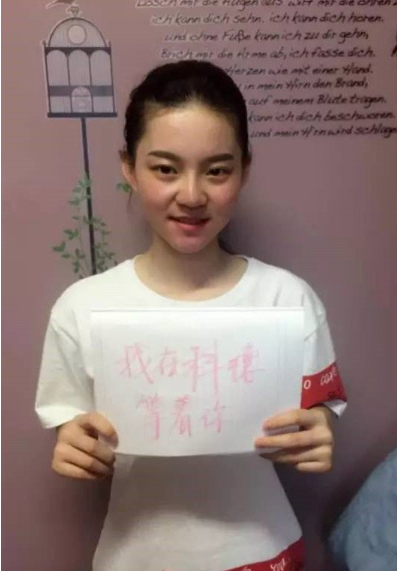 Lösch mir die Augen aus wirf mir die Ohren
ich kann dich sehn, ich kann dich hören,
und ohne Füße kann ich zu dir gehn,
Brich mir die Arme ab, ich fasse dich.
Herzen wie mit einer Hand.
in mein Hirn den Brand,
auf meinem Blute tragen.
kann ich dich beschwören.
und mein Hirn wird schlage
我在科
等着你